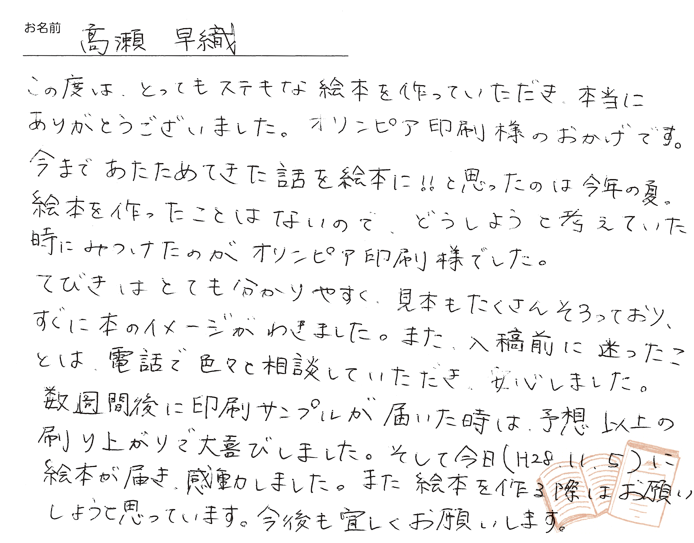 お名前 高瀬 早織
この度は、とってもステキな絵本を作っていただき、本当に
ありがとうございました。オリンピア印刷様のおかげです。
今まであたためてきた話を絵本に!!と思ったのは今年の夏。
絵本を作ったことはないので、どうしようと考えていた
時にみつけたのがオリンピア印刷様でした。
てびきはとても分かりやすく、見本もたくさんそろっており、
すぐに本のイメージがわきました。また、入稿前に迷ったこ
とは、電話で色々と相談していただき、安心しました。
数週間後に印刷サンプルが届いた時は、予想以上の
刷り上がりで大喜びしました。そして今日(H28.11.5)に
絵本が届き、感動しました。また絵本を作る際はお願い
しようと思っています。今後も宜しくお願いします。